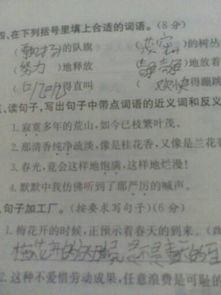 四、在下列括号里填上合适的词语。(8分)
(飘扬)的队旗 ()的树丛
(努力)地释放 ()地放着
()得直叫 (欢快)得蹦跳
读句子,写出句子中带点词语的近义词和反义
1.寂寞多年的荒山,如今已枝繁叶茂。
2.那清香纯净疏淡,像是桂花香,又像是兰花
3.春光,竟会这样地饱满,这样地烂漫!
4.默默中我仿佛听到了那严厉的喊声。
句子加工厂。(按要求写句子)(6分)
1.梅花开的时候,正预示着春天的到来。(
梅花开的时候,
2.这种不爱惜劳动成果,任意浪费是可耻的